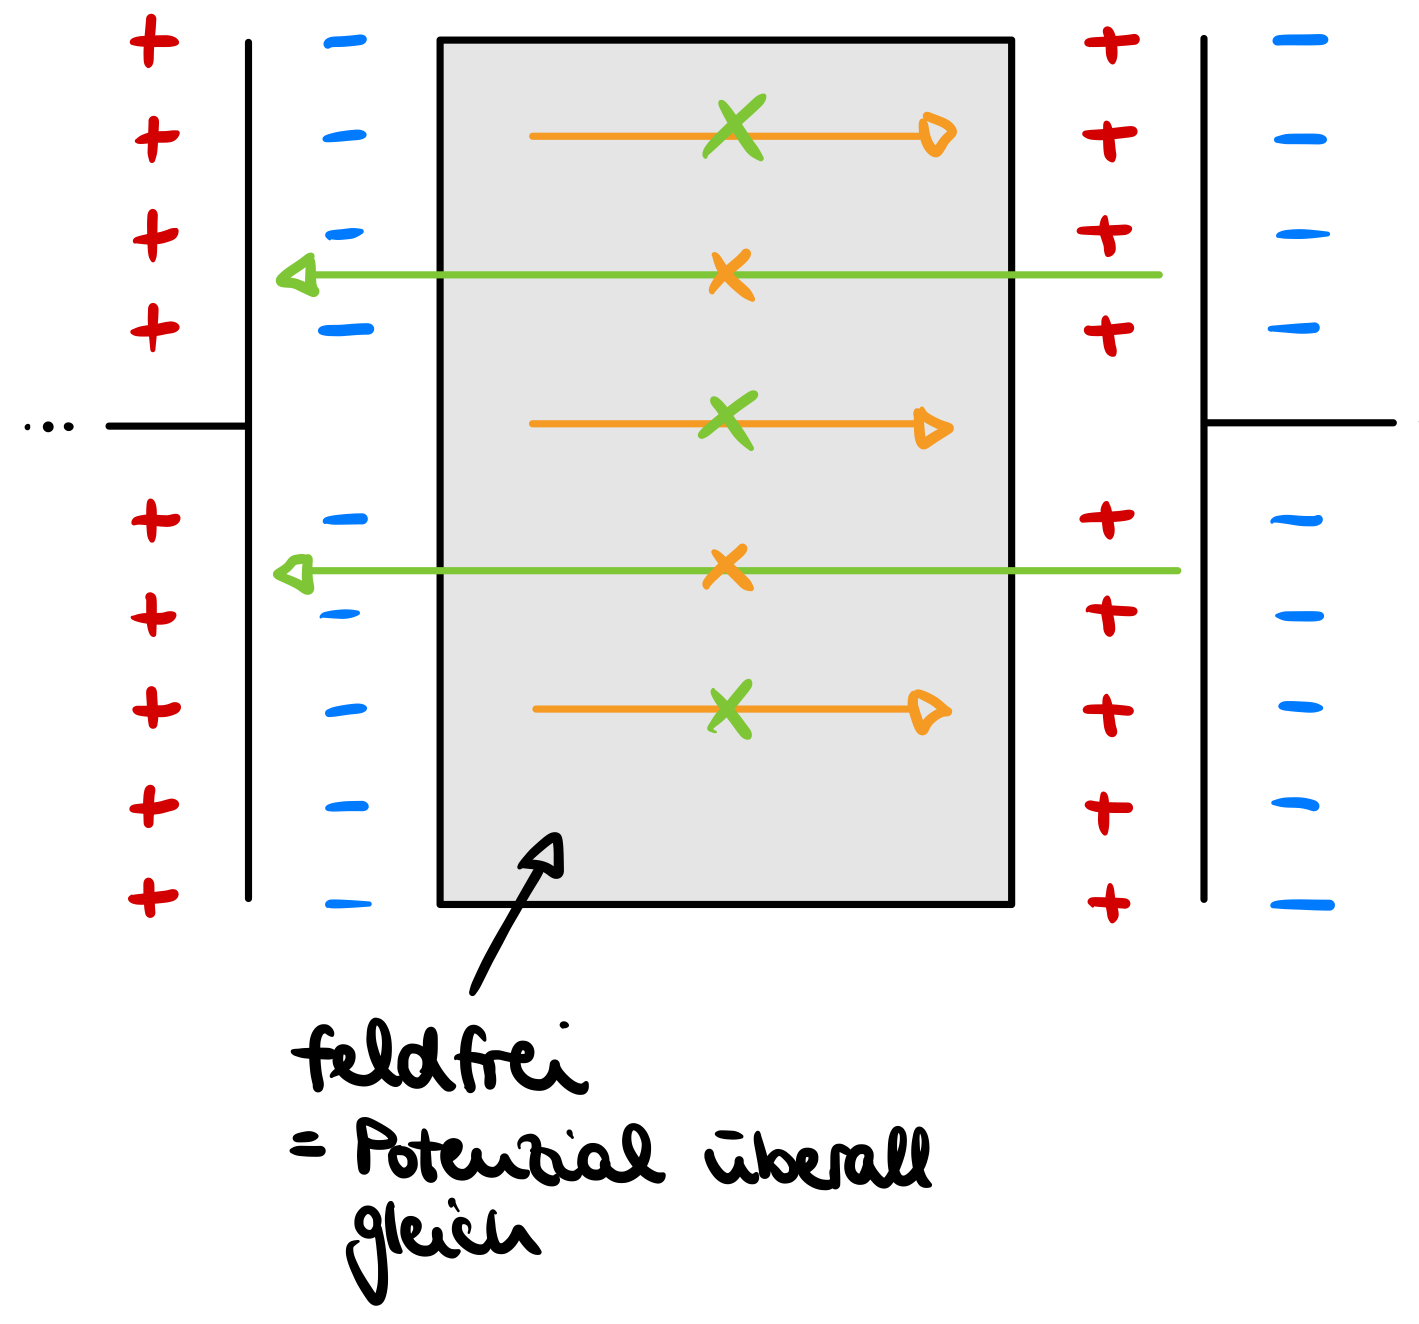 feldfrei
= Potenzial überall
gleich